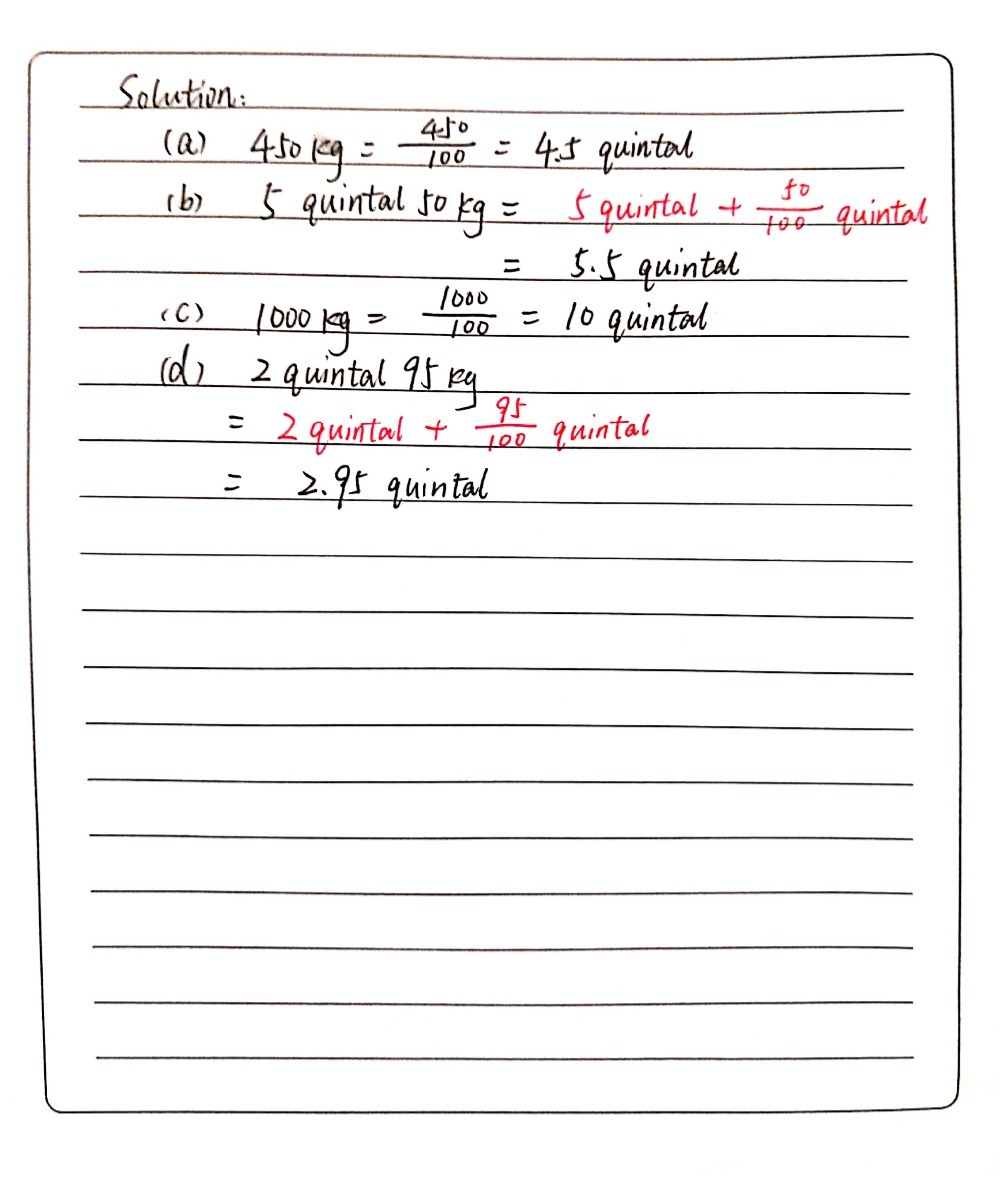 Solution:
(a) 450 kg = 450/100 = 4.5 quintal
(b) 5 quintal 50 kg = 5 quintal + 50/100 quintal
= 5.5 quintal
(c) 1000 kg = 1000/100 = 10 quintal
(d) 2 quintal 95 kg
= 2 quintal + 95/100 quintal
= 2.95 quintal